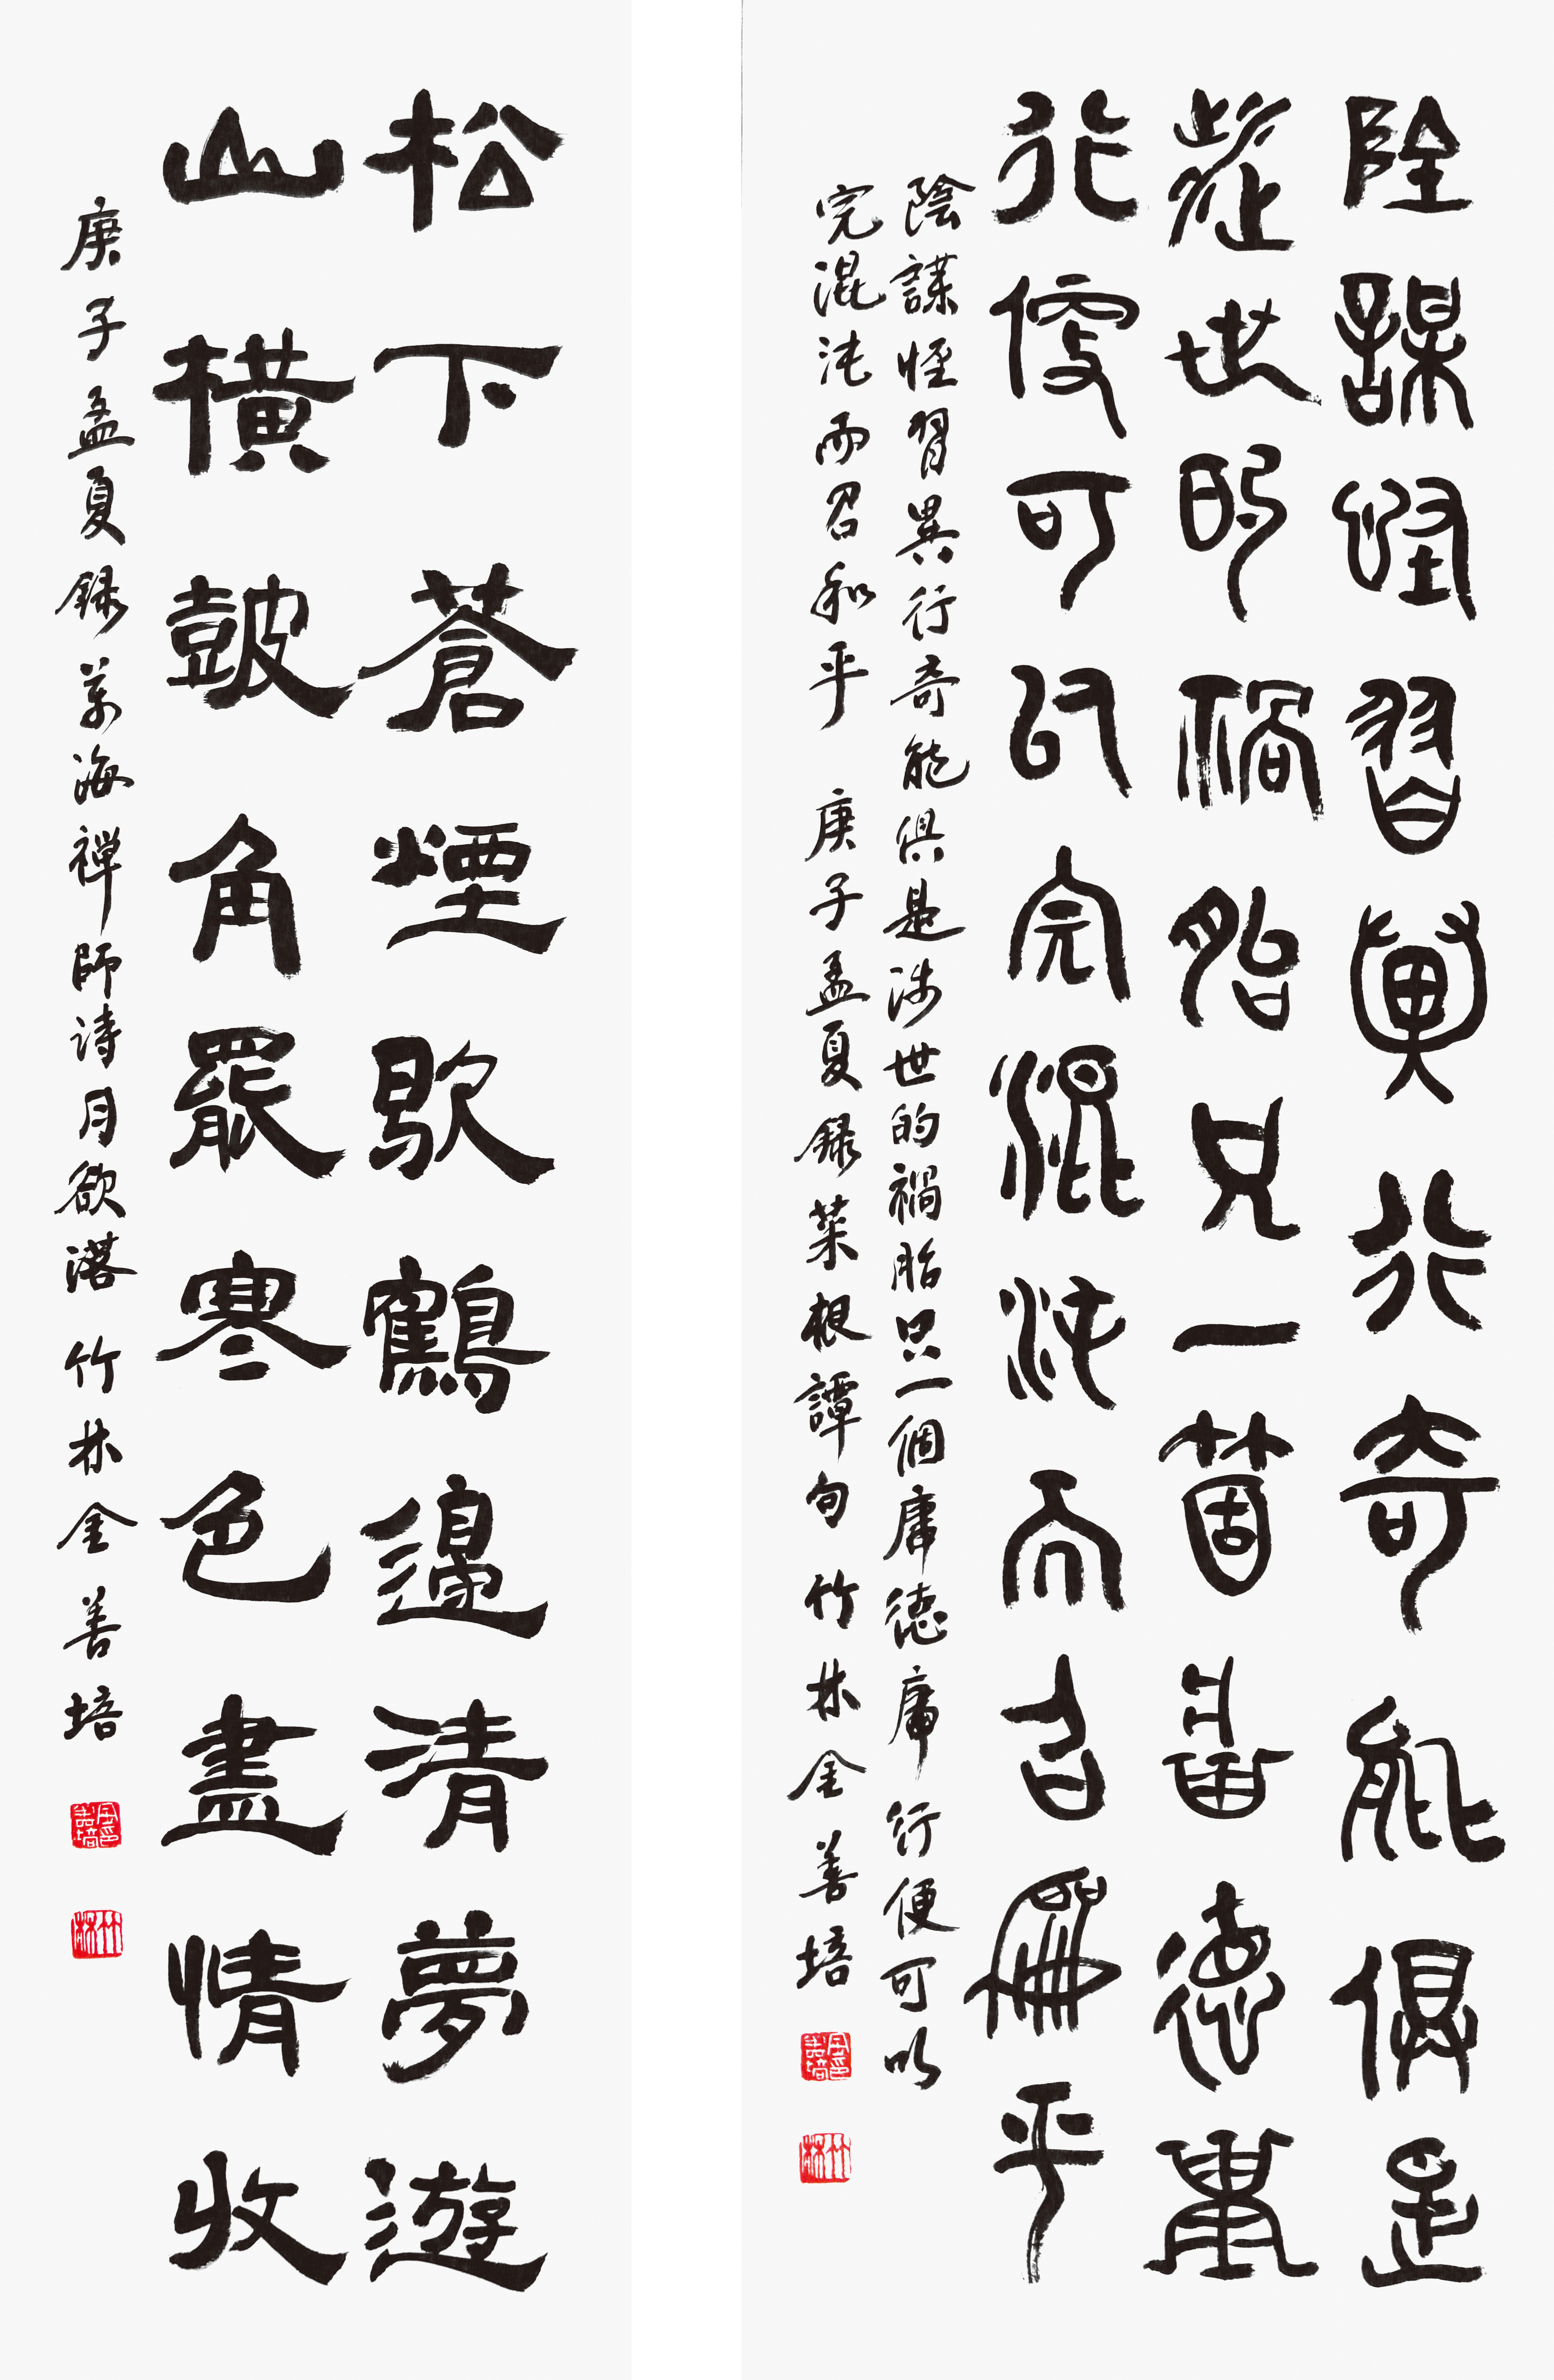 陰謀怪習異行奇能俱是
涉世的禍胎只一箇庸德庸
行便可以完混沌而召和平
陰謀怪習異行奇能俱是涉世的禍胎只一個庸德庸行便可以
完混沌而召和平 庚子孟夏録菜根譚句 竹林金善培
金善培印
竹林
松下蒼煙歇鶴邊清夢遊
山橫鼓角罷寒色盡情收
庚子孟夏録萬海禅師詩月欲落 竹林金善培
金善培印
竹林